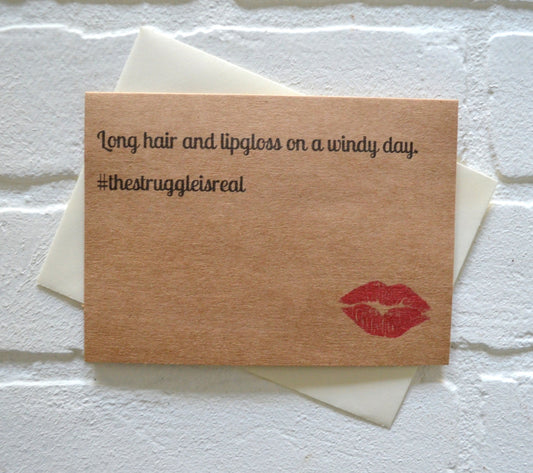 Long hair and lipgloss on a windy day.
#thestruggleisreal